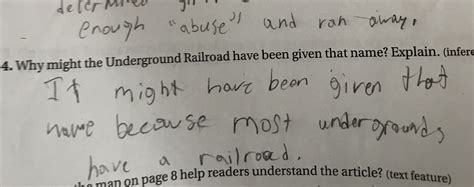 enough "abuse" and ran away.
4. Why might the Underground Railroad have been given that name? Explain. (infere
It might have been given that
name because most undergrounds
have a railroad.
man on page 8 help readers understand the article? (text feature)